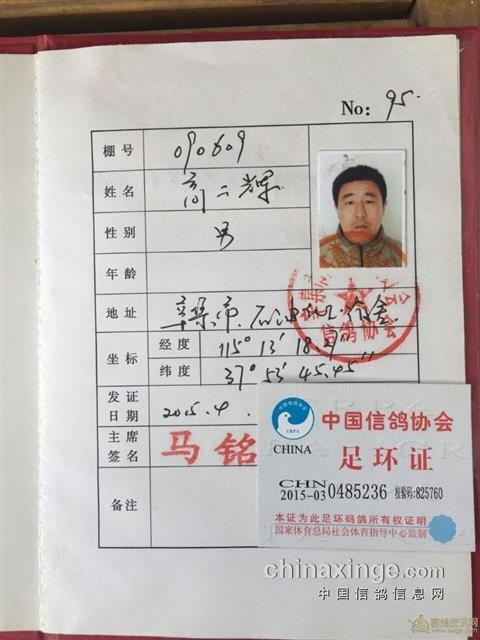 No: 95.
棚号 090609
姓名 高二辉
性别 男
年龄
地址 辛集市
坐标 经度 115° 13′ 18
纬度 37° 53′ 45.45″
发证日期 2015.4.
主席签名 马铭
备注
信鸽协会
中国信鸽协会
CRPA
CHINA
足环证
CHN
2015-03 0485236 校验码:825760
本证为此足环码鸽所有权证明
国家体育总局社会体育指导中心监制
chinaxinge.com
中国信鸽信息网
赛鸽资讯网
www.saige.com